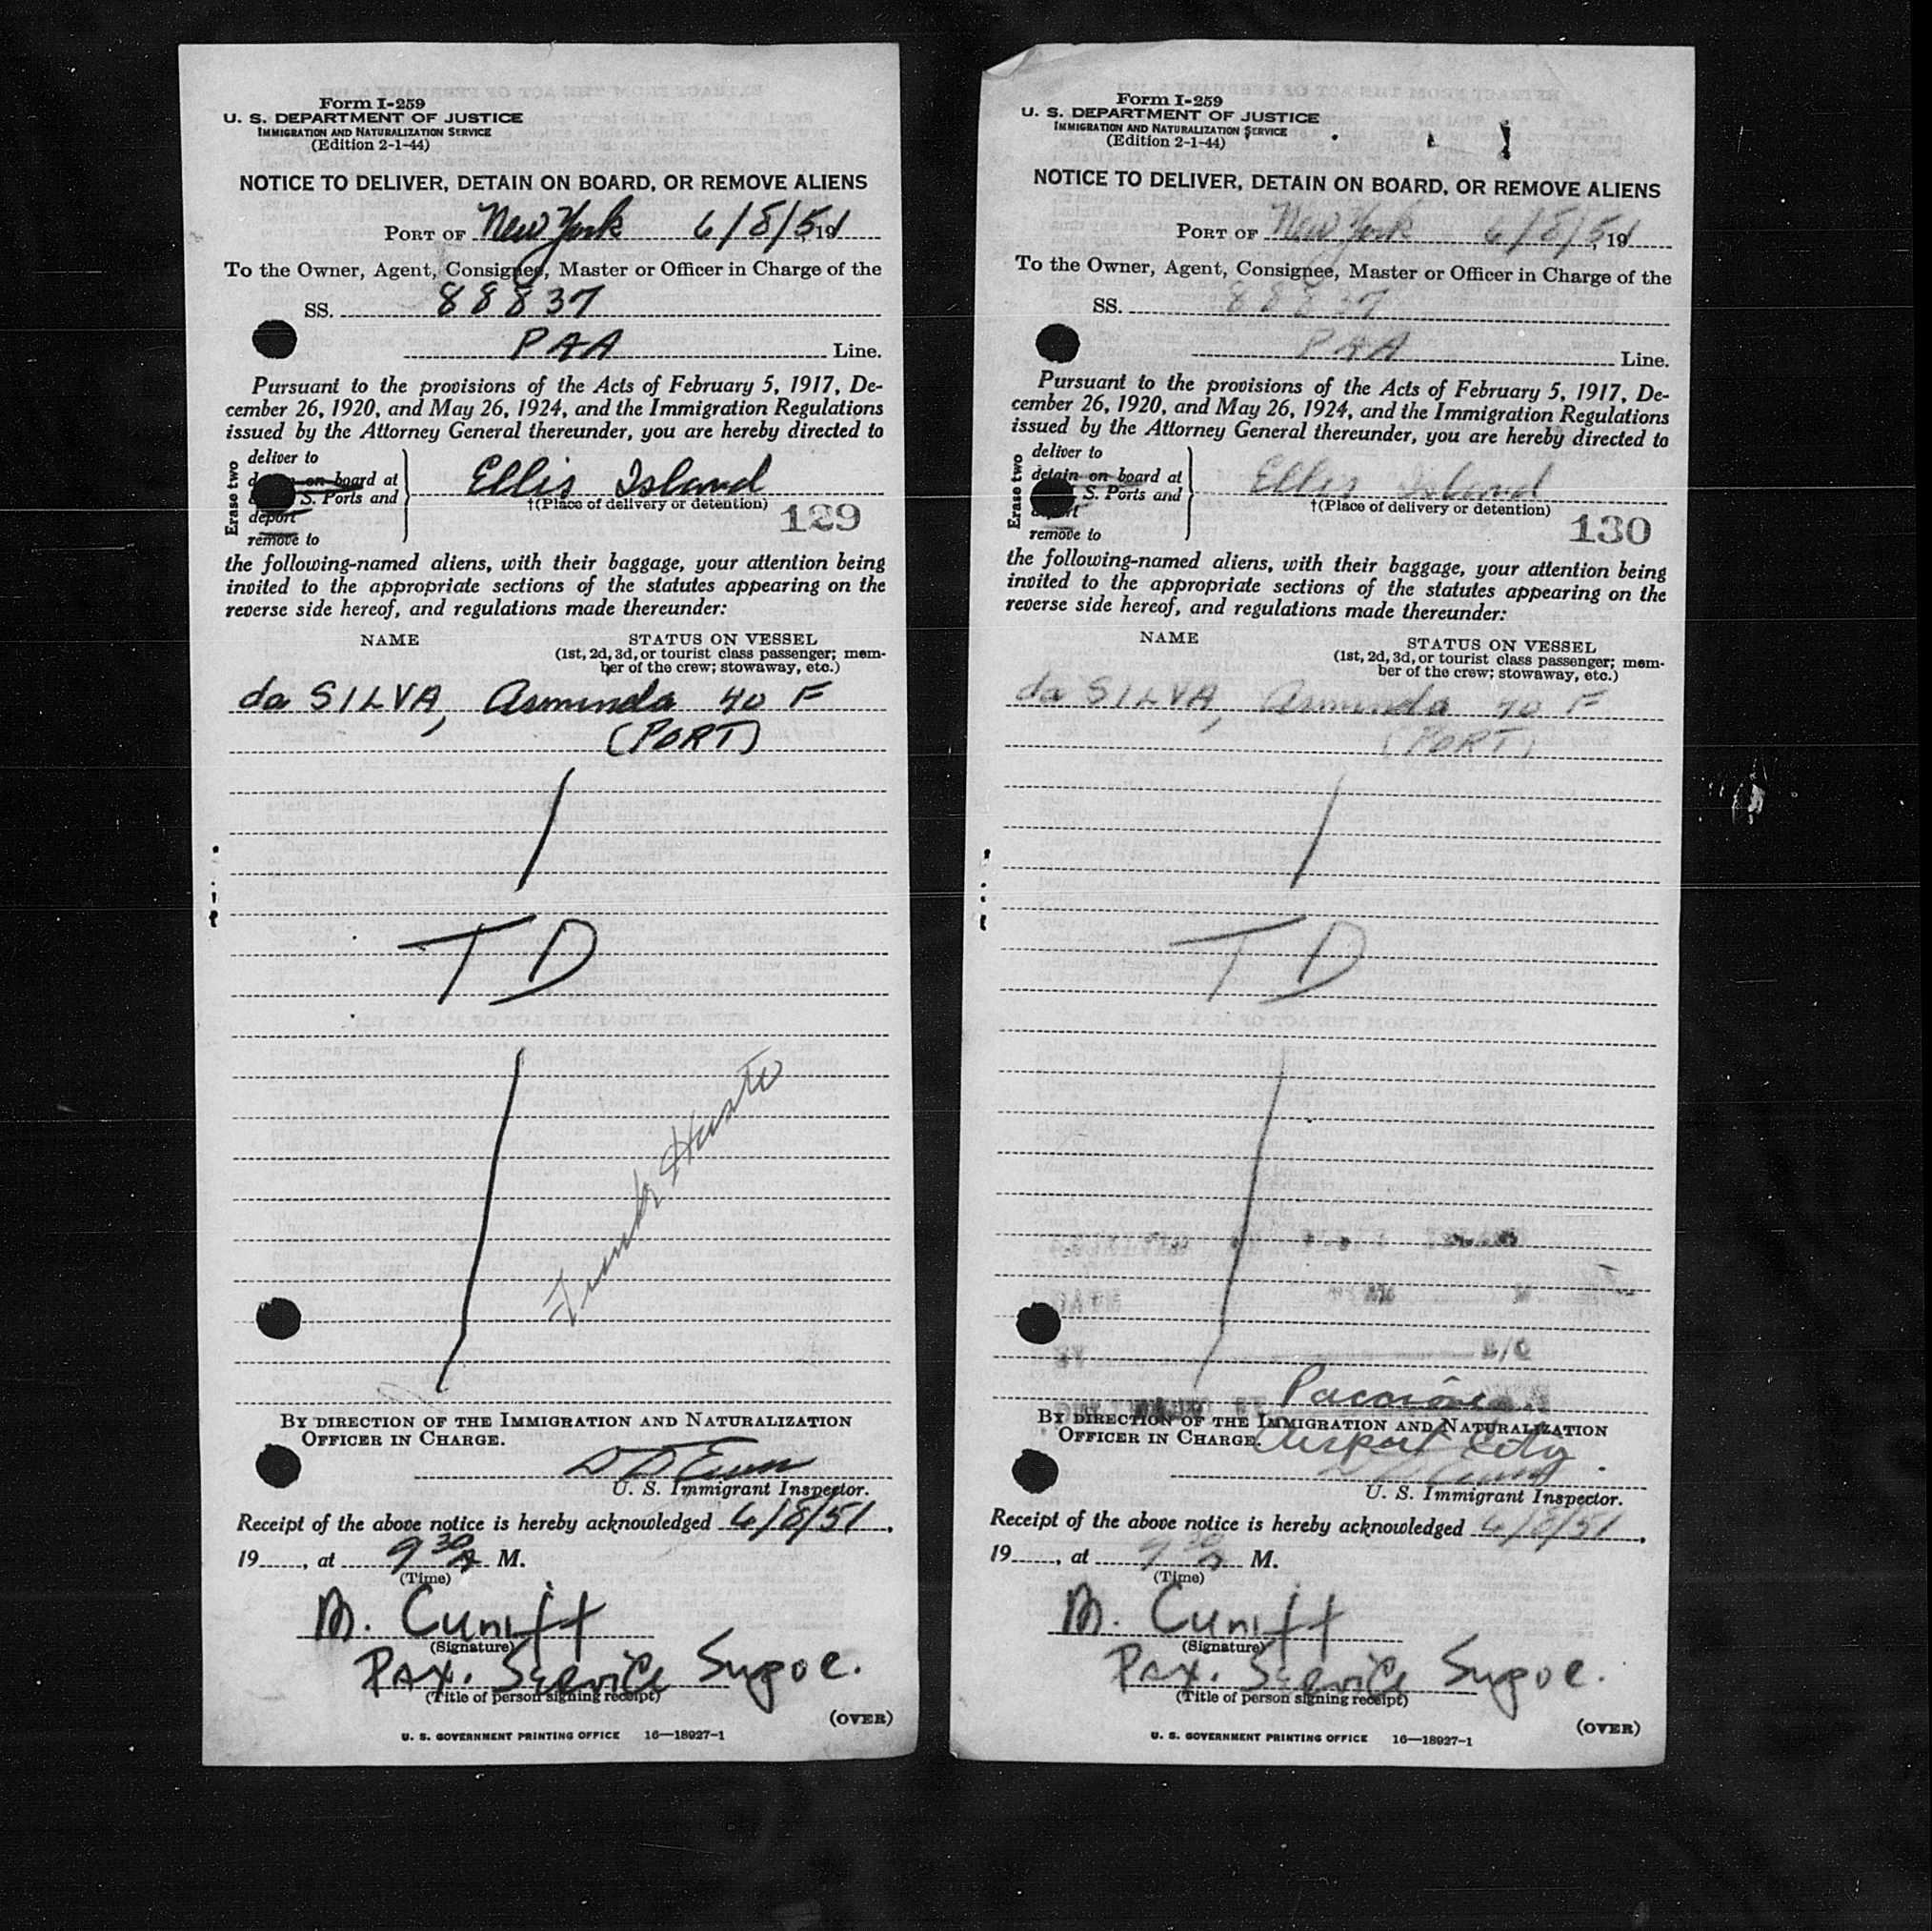 Form I-259
U. S. DEPARTMENT OF JUSTICE
IMMIGRATION AND NATURALIZATION SERVICE
(Edition 2-1-44)
NOTICE TO DELIVER, DETAIN ON BOARD, OR REMOVE ALIENS
PORT OF New York 6/8/51, 19
To the Owner, Agent, Consignee, Master or Officer in Charge of the
SS. 88837
PAA Line.
Pursuant to the provisions of the Acts of February 5, 1917, De-
cember 26, 1920, and May 26, 1924, and the Immigration Regulations
issued by the Attorney General thereunder, you are hereby directed to
Erase two
deliver to
on board at
S. Ports and
deport
remove to
Ellis Island
†(Place of delivery or detention)
129
the following-named aliens, with their baggage, your attention being
invited to the appropriate sections of the statutes appearing on the
reverse side hereof, and regulations made thereunder:
NAME STATUS ON VESSEL
(1st, 2d, 3d, or tourist class passenger; mem-
ber of the crew; stowaway, etc.)
da SILVA, Arminda 40 F
(PORT)
TD
BY DIRECTION OF THE IMMIGRATION AND NATURALIZATION
OFFICER IN CHARGE.
U. S. Immigrant Inspector.
Receipt of the above notice is hereby acknowledged 6/8/51,
19, at 9 30 A M.
(Time)
M. Cuniff
(Signature)
Pax. Service Supvr.
(Title of person signing receipt)
(OVER)
U. S. GOVERNMENT PRINTING OFFICE 16—18927-1
Form I-259
U. S. DEPARTMENT OF JUSTICE
IMMIGRATION AND NATURALIZATION SERVICE
(Edition 2-1-44)
NOTICE TO DELIVER, DETAIN ON BOARD, OR REMOVE ALIENS
PORT OF New York 6/8/51, 19
To the Owner, Agent, Consignee, Master or Officer in Charge of the
SS. 88837
PAA Line.
Pursuant to the provisions of the Acts of February 5, 1917, De-
cember 26, 1920, and May 26, 1924, and the Immigration Regulations
issued by the Attorney General thereunder, you are hereby directed to
Erase two
deliver to
detain on board at
S. Ports and
remove to
Ellis Island
†(Place of delivery or detention)
130
the following-named aliens, with their baggage, your attention being
invited to the appropriate sections of the statutes appearing on the
reverse side hereof, and regulations made thereunder:
NAME STATUS ON VESSEL
(1st, 2d, 3d, or tourist class passenger; mem-
ber of the crew; stowaway, etc.)
da SILVA, Arminda 40 F
(PORT)
TD
BY DIRECTION OF THE IMMIGRATION AND NATURALIZATION
OFFICER IN CHARGE.
Airport City
U. S. Immigrant Inspector.
Receipt of the above notice is hereby acknowledged 6/8/51,
19, at 9 30 A M.
(Time)
M. Cuniff
(Signature)
Pax. Service Supvr.
(Title of person signing receipt)
(OVER)
U. S. GOVERNMENT PRINTING OFFICE 16—18927-1